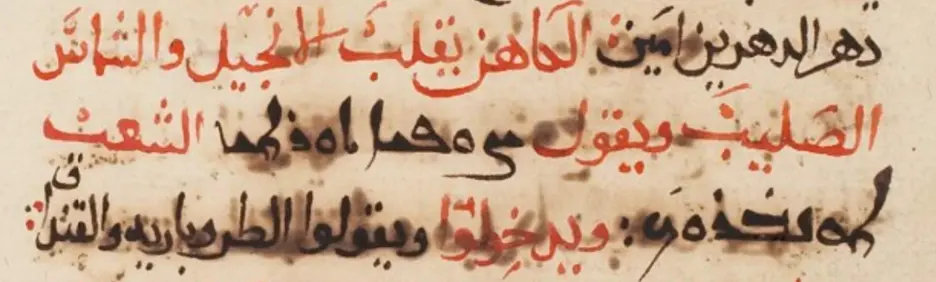 دهر الدهرين امين الكاهن يقلب الانجيل والشماس
الصليب ويقول الشعب
: ويدخلوا ويقولوا الطروباريه والقنداق :